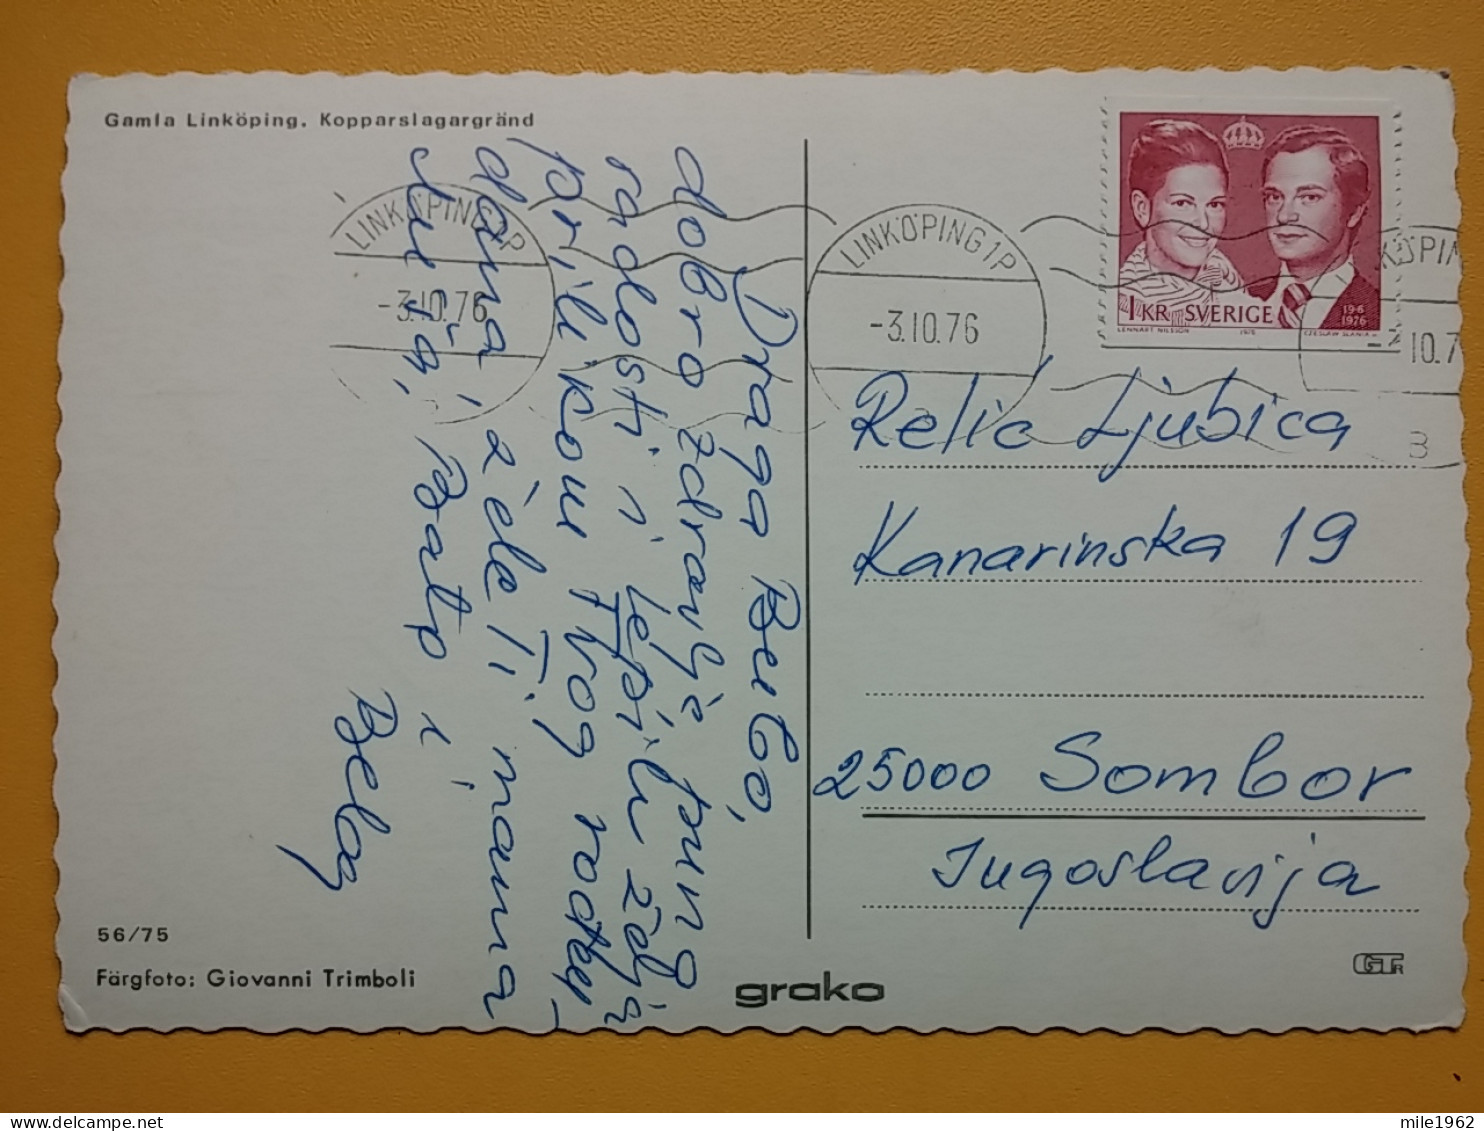 Gamla Linköping. Kopparslagargränd
LINKÖPING 1P
-3.10.76
LINKÖPING 1P
-3.10.76
KÖPIN
10.7
B
1 KR SVERIGE
19-6
1976
LENNART NILSSON 1976 CZESLAW SLANIA
Draga Bebo,
dobro zdravlje puno
radosti i lepih želja
prilikom Tvog rođen-
dana žele Ti mama
Bato i
Bela
Relić Ljubica
Kanarinska 19
25000 Sombor
Jugoslavija
56/75
Färgfoto: Giovanni Trimboli
grako
mile1962